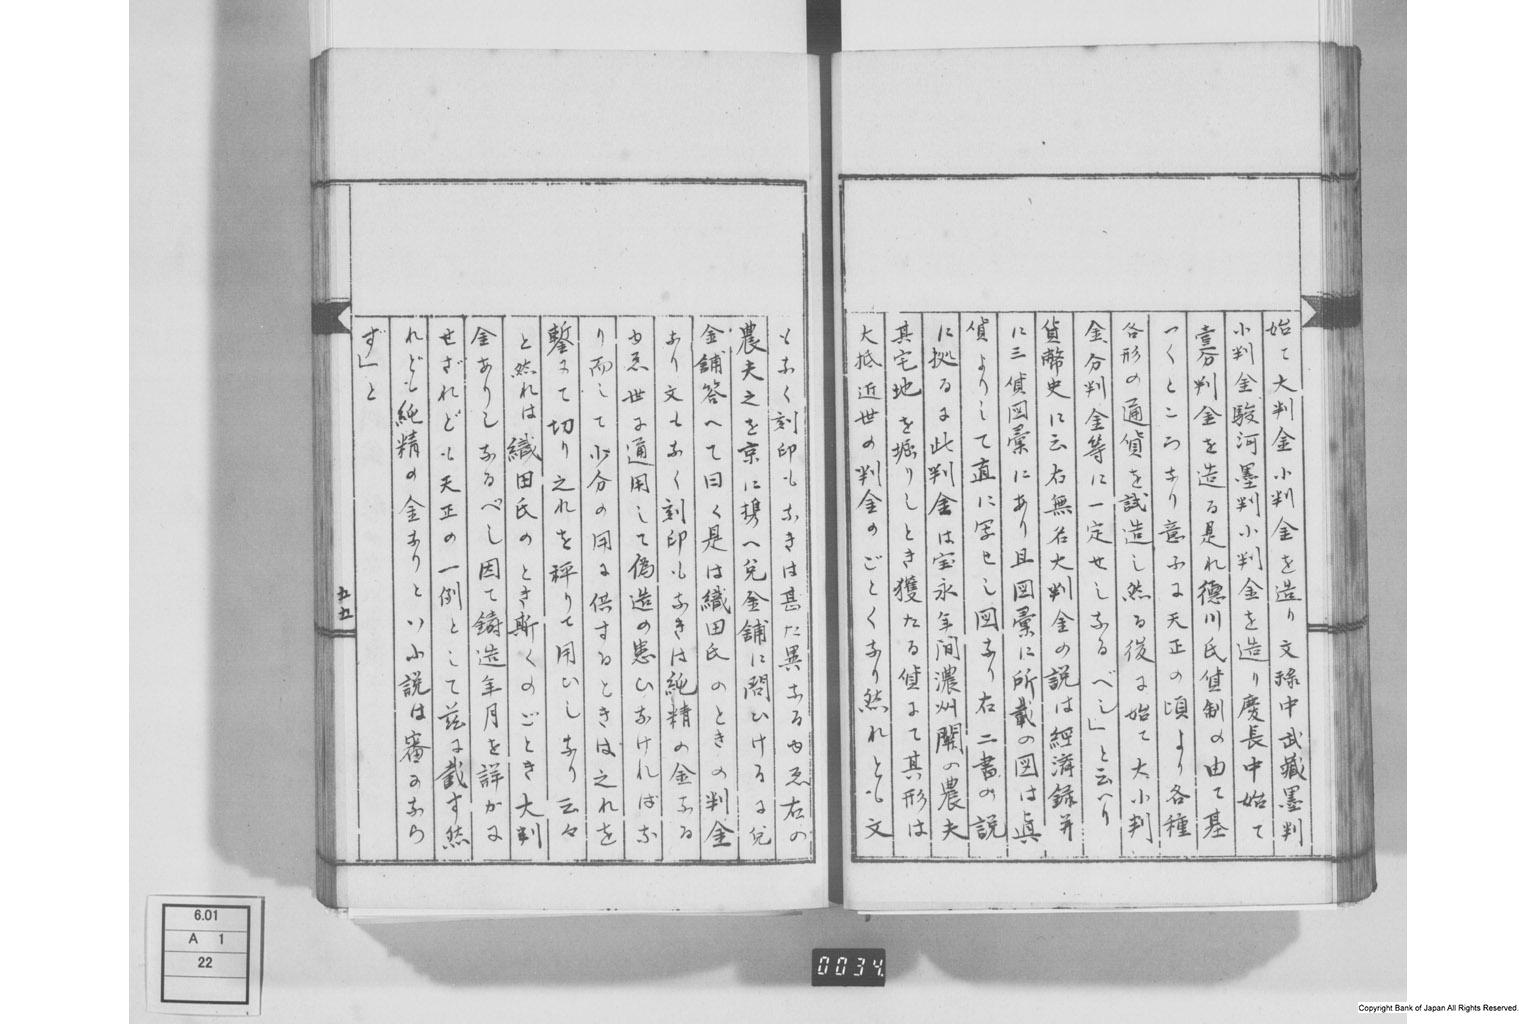 始て大判金小判金を造り文祿中武藏墨判
小判金駿河墨判小判金を造り慶長中始て
壹分判金を造る是れ德川氏貨制の由て基
つくところなり意ふに天正の頃より各種
各形の通貨を試造し然る後に始て大小判
金分判金等に一定せしなるべし」と云へり
貨幣史に云右無名大判金の説は經濟録并
に三貨図彙にあり且図彙に所載の図は真
貨よりして直に写せし図なり右二書の説
に拠るに此判金は宝永年間濃州關の農夫
其宅地を堀りしとき獲たる貨にて其形は
大抵近世の判金のごとくなり然れとも文
もなく刻印もなきは甚た異なるゆゑ右の
農夫之を京に携へ兌金舗に問ひけるに兌
金舗答へて曰く是は織田氏のときの判金
なり文もなく刻印もなきは純精の金なる
ゆゑ世に通用して偽造の患ひなければな
り而して少分の用に供するときは之れを
鏨にて切り之れを秤りて用ひしなり云々
と然れは織田氏のとき斯くのごとき大判
金ありしなるべし因て鑄造年月を詳かに
せざれども天正の一例として茲に載す然
れども純精の金なりといふ説は審かなら
す」と
五五
6.01
A 1
22
0034
Copyright Bank of Japan All Rights Reserved.